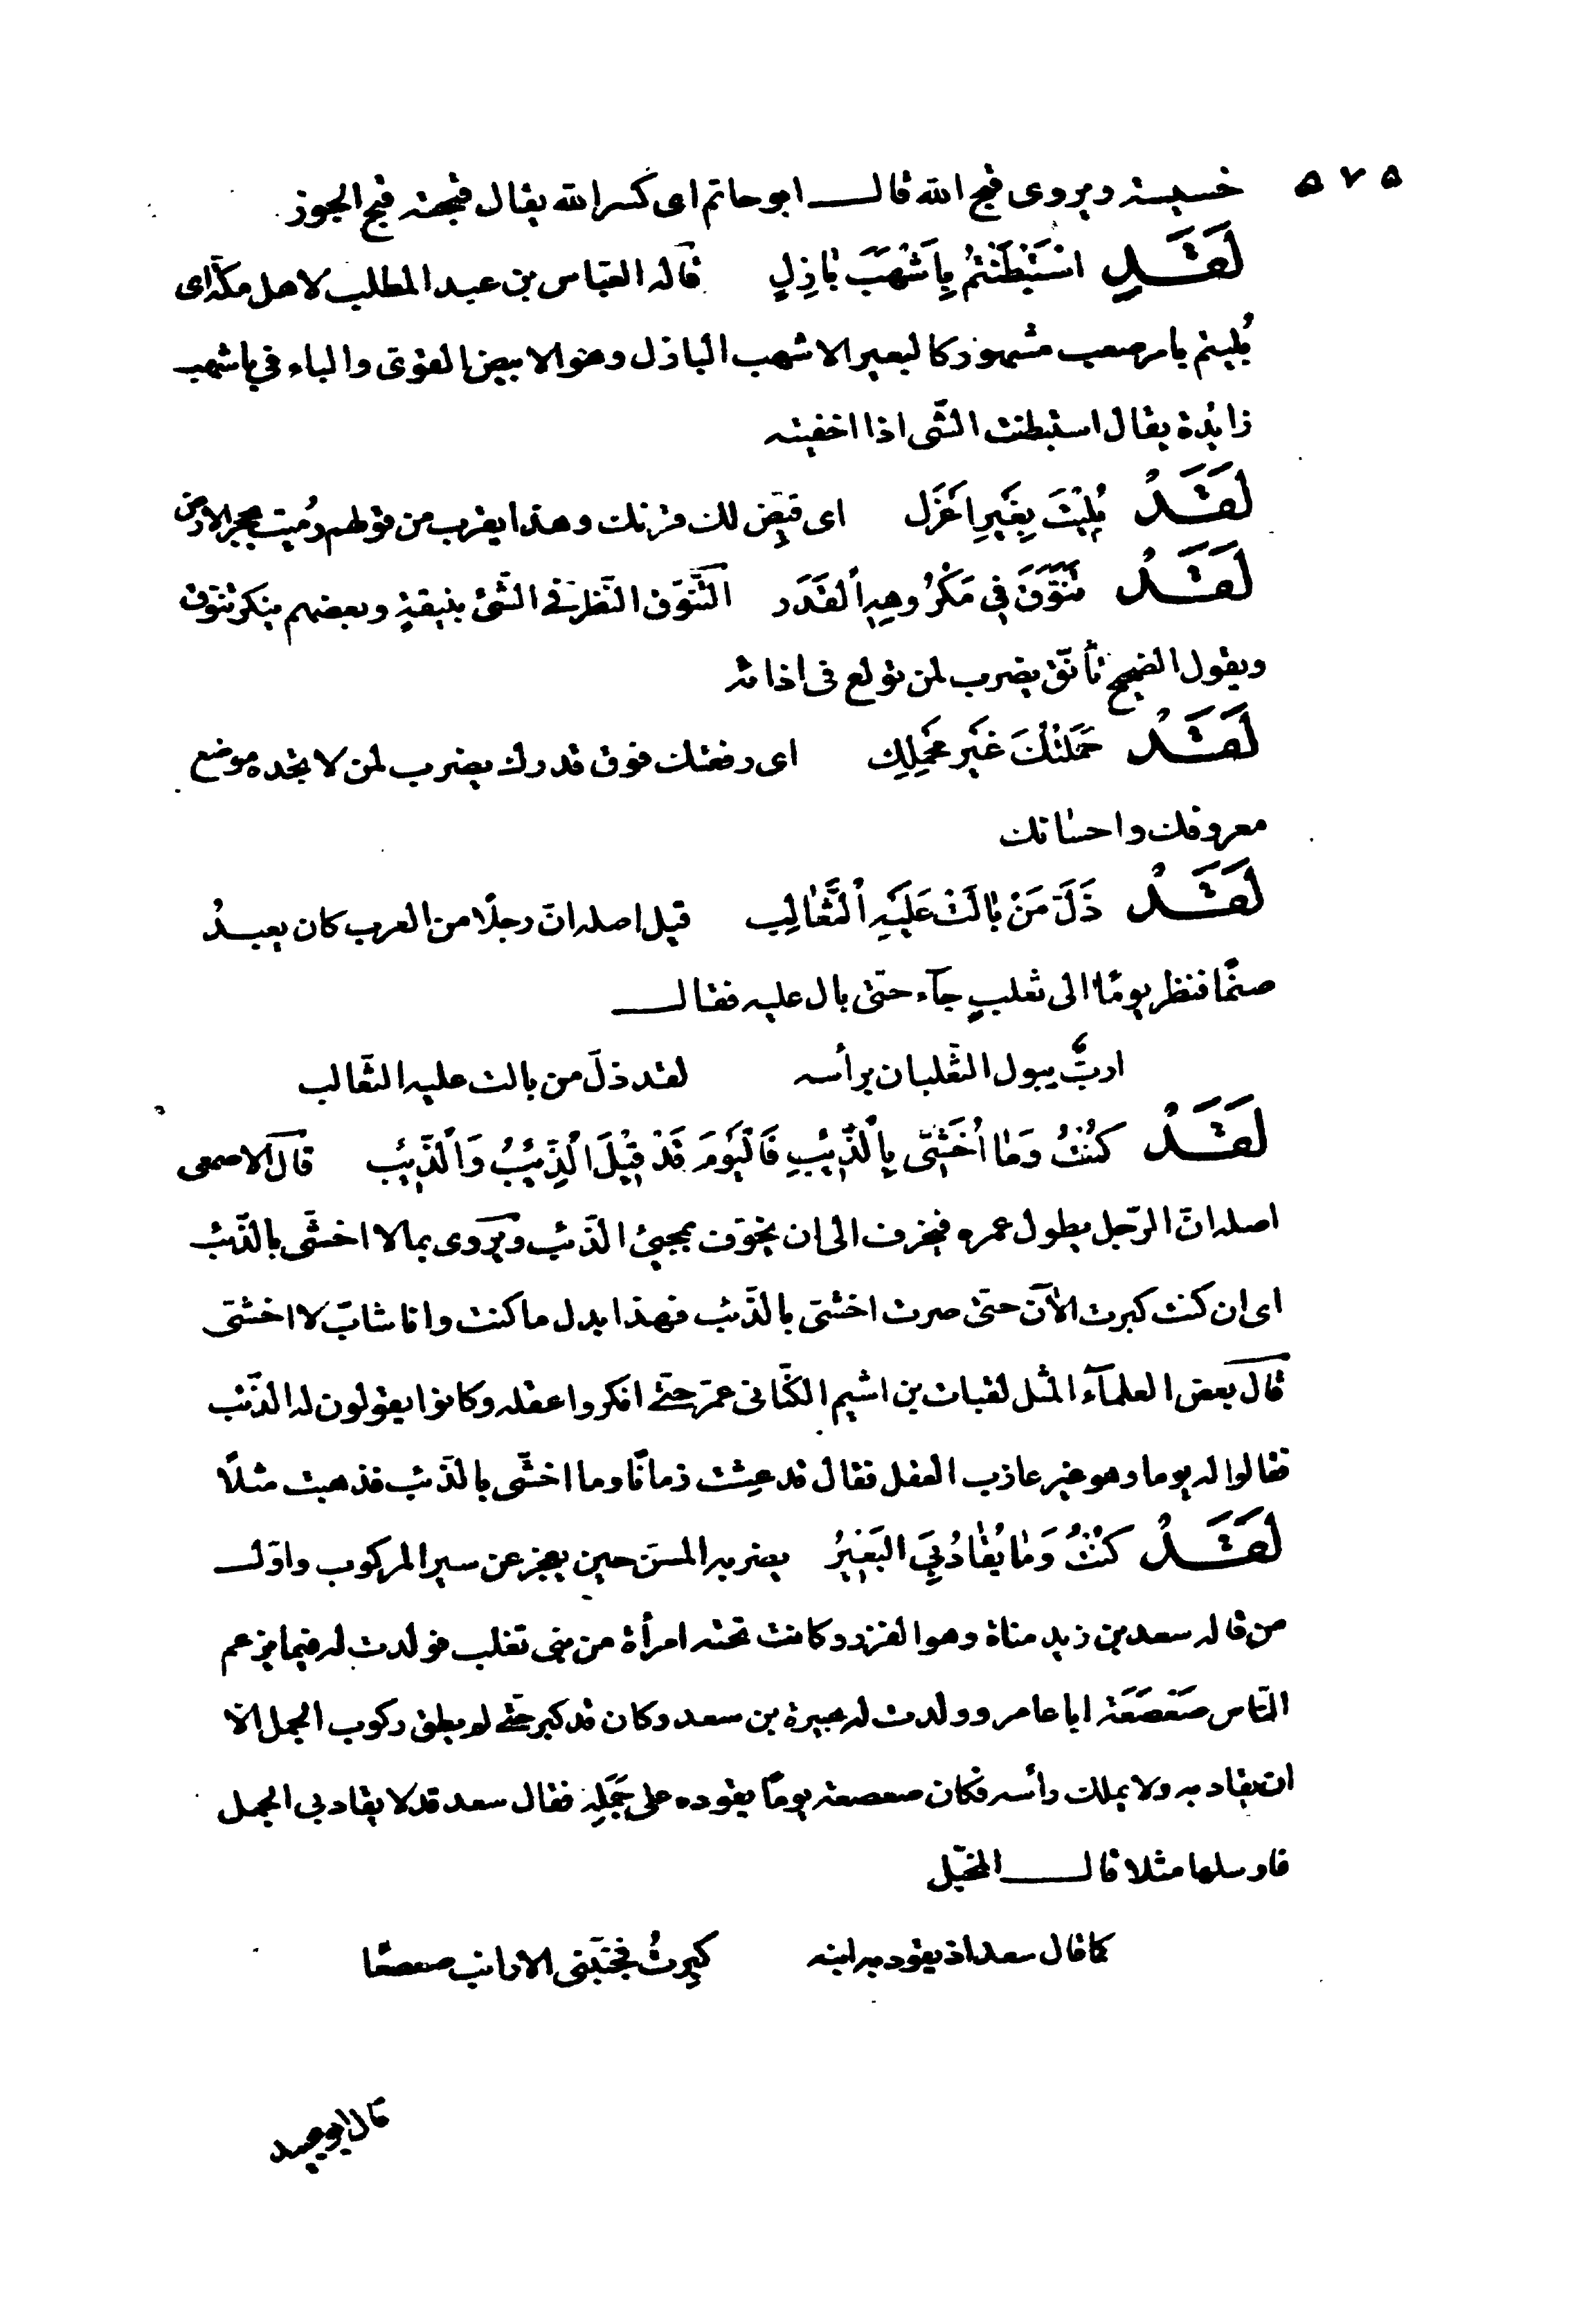 ٥٧٥
خسيسة ويروى قبح الله قال ابو حاتم اى كسر الله يقال قبحته قبح الجوز
لَقَدِ اسْتَبْطَنْتُمْ بِاَشْهَبَ بٰازِلٍ قاله العبّاس بن عبد المطلب لاهل مكّة اى
بُليتم بامر صعب مشهور كالبعير الاشهب البازل وهو الابيض القوىّ والباء فى باشهب
زائدة يقال استبطنت الشّى اذا اخفيته
لَقَدْ بُلِيْتَ بِغَيْرِ اَعْزَل اى قيّض لك قرنك وهذا يقرب من قولهم رُميت بحجر الارض
لَقَدْ تَنَوَّقَ فِى مَكْرُوهِهِ اْلقَدَر التَّنوّق النّظر فى الشّئ بنيقةٍ وبعضهم ينكر تنوّق
ويقول الصّحيح تأنّق يضرب لمن تولع فى اذاته
لَقَدْ حَمَلْتُكَ غَيْر مَحْمِلِك اى رفعتك فوق قدرك يضرب لمن لا تجده موضع
معروفك واحسانك
لَقَدْ ذَلَّ مَنْ بٰالَتْ عَلَيْهِ اْلثَّعٰالِب قيل اصله انّ رجلًا من العرب كان يعبدُ
صنمًا فنظر يومًا الى ثعلبٍ جآء حتّى بال عليه فقال
اربٌّ يبول الثّعلبان برأسه لقد ذلّ من بالت عليه الثّعالب
لَقَدْ كُنْتُ وَمٰا اُخَشّٰى بِالْذِّئْبِ فَالْيَوْمَ قَدْ قِيْلَ الْذِّئْبُ وَالْذِّئْب قال الاصمعى
اصله انّ الرّجل يطول عمره فيخرف الى ان يخوّف بمجيئ الذّئب ويروى بما لا اخشّى بالذّئب
اى ان كنت كبرت الآن حتّى صرت اخشّى بالذّئب فهذا بدل ما كنت وانا شابّ لا اخشّى
قال بعض العلمآء المثل لقباث بن اشيم الكنانى عمّر حتّى انكروا عقله وكانوا يقولون له الذّئب
فقالوا له يوما وهو غير عازب العقل فقال قد عشت زمانًا وما اخشّى بالذّئب فذهبت مثلًا
لَقَدْ كُنْتُ وَمٰا يُقٰادُ بِىَ البَعِيْرُ يضربه المسنّ حين يعجز عن سير المركوب واوّل
من قاله سعد بن زيد مناة وهو الفزر وكانت تحته امرأة من بنى تغلب فولدت له فيما يزعم
النّاس صَعْصَعَة ابا عامر وولدت له هبيرة بن سعد وكان قد كبر حتّى لم يطق ركوب الجمل الّا
ان يقاد به ولا يملك رأسه فكان صعصعة يومًا يقوده على جَمَلِه فقال سعد قد لا يقاد بى الجمل
فارسلها مثلا قال المخبّل
كما قال سعد اذ يقود به ابنه كبرتُ فجنّبنى الارانب صعصعًا
قال ابو عبيد